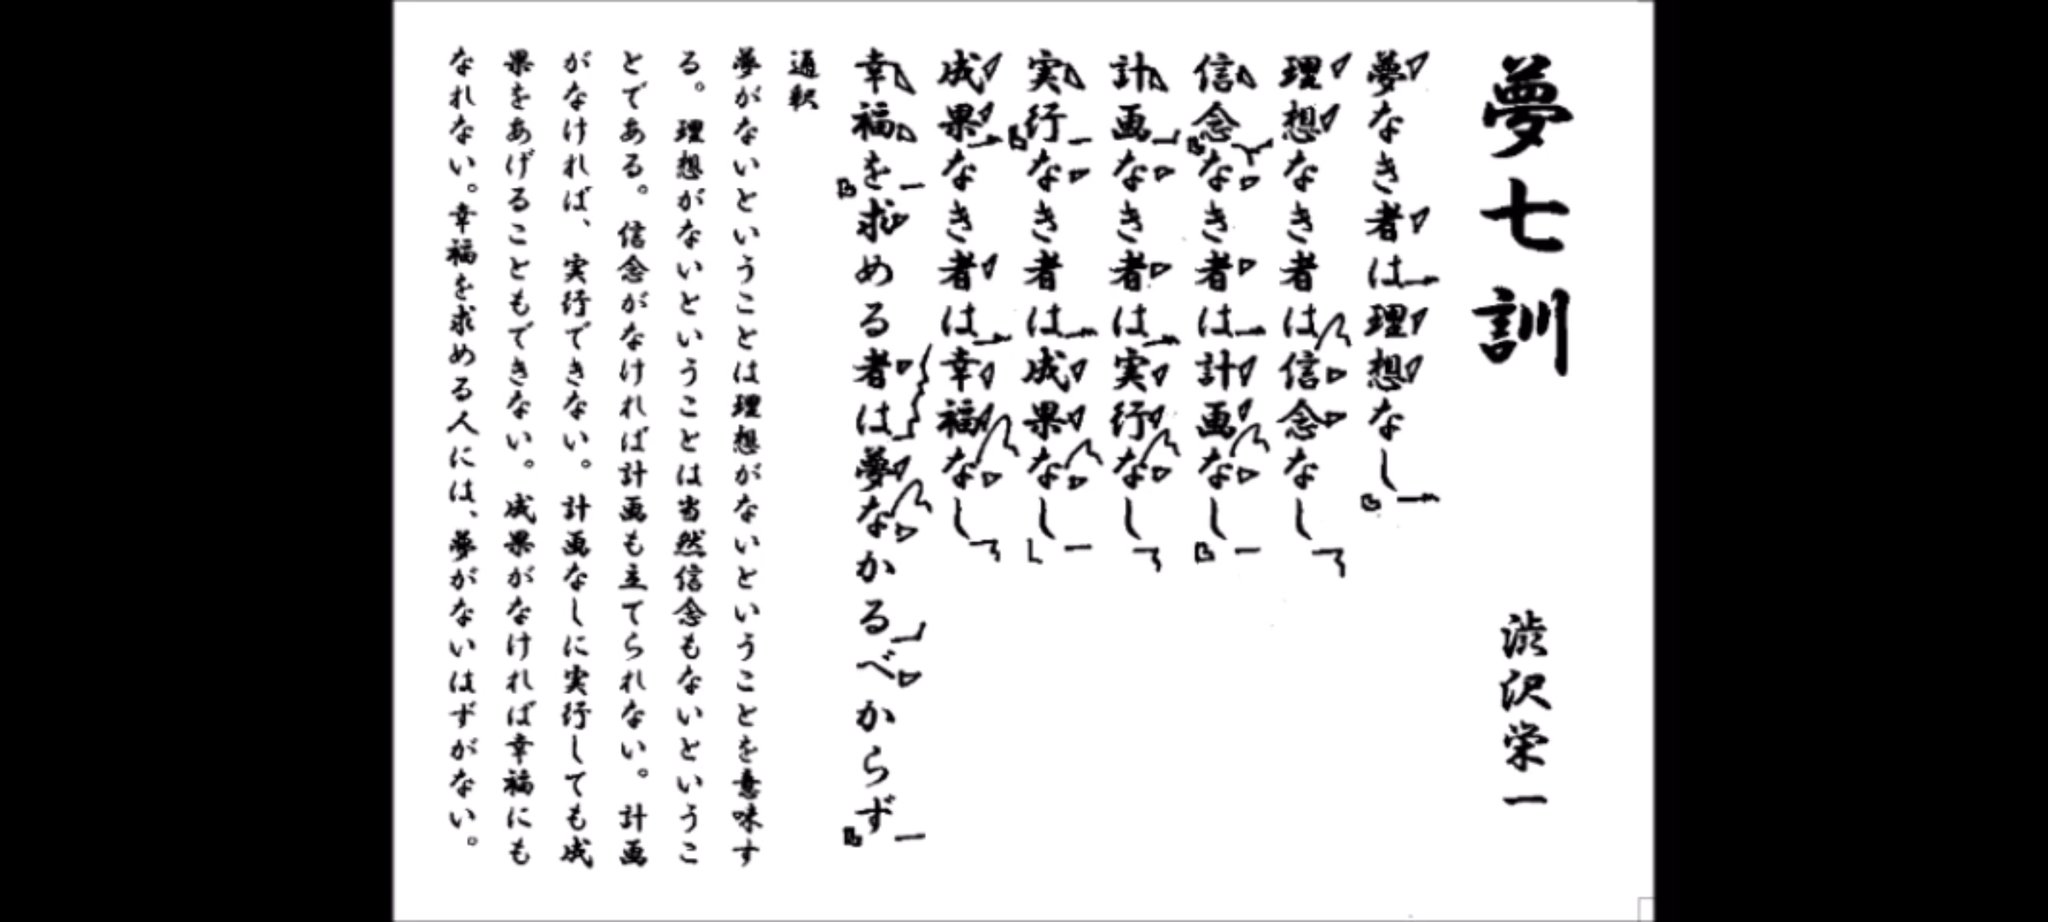 夢七訓
渋沢栄一
夢なき者は理想なし
理想なき者は信念なし
信念なき者は計画なし
計画なき者は実行なし
実行なき者は成果なし
成果なき者は幸福なし
幸福を求める者は夢なかるべからず
通釈
夢がないということは理想がないということを意味す
る。理想がないということは当然信念もないというこ
とである。信念がなければ計画も立てられない。計画
がなければ、実行できない。計画なしに実行しても成
果をあげることもできない。成果がなければ幸福にも
なれない。幸福を求める人には、夢がないはずがない。